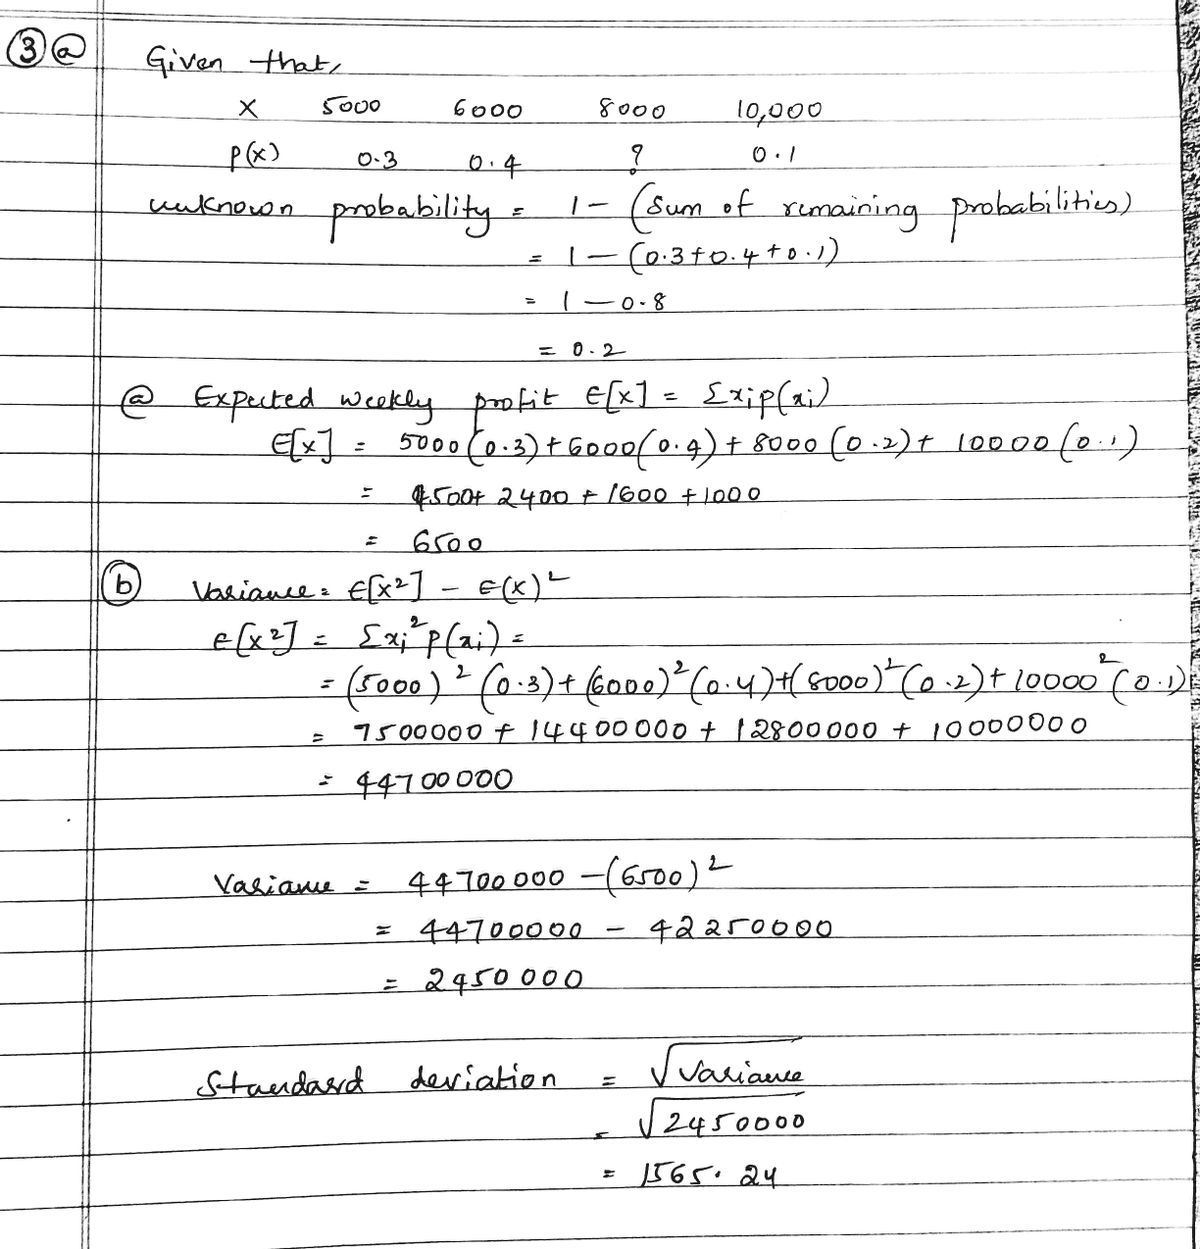 ③ⓐ Given that,
X 5000 6000 8000 10,000
P(x) 0.3 0.4 ? 0.1
unknown probability = 1 - (Sum of remaining probabilities)
= 1 - (0.3+0.4+0.1)
= 1 - 0.8
= 0.2
ⓐ Expected weekly profit E[x] = Σxip(xi)
E[x] = 5000(0.3)+6000(0.4)+8000(0.2)+10000(0.1)
= 1500+2400+1600+1000
= 6500
ⓑ Variance = E[x²] - E(x)²
E[x²] = Σxi²P(xi) =
= (5000)²(0.3)+(6000)²(0.4)+(8000)²(0.2)+10000²(0.1)
= 7500000 + 14400000 + 12800000 + 10000000
= 44700000
Variance = 44700000 - (6500)²
= 44700000 - 42250000
= 2450000
Standard deviation = √Variance
= √2450000
= 1565.24